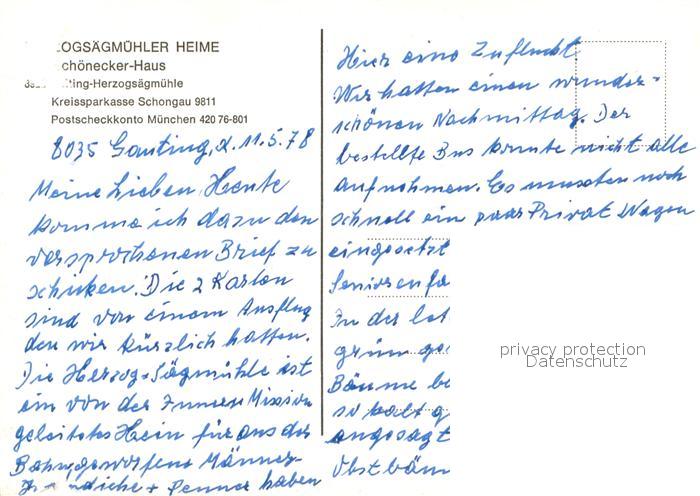 ZOGSÄGMÜHLER HEIME
chönecker-Haus
iting-Herzogsägmühle
Kreissparkasse Schongau 9811
Postscheckkonto München 420 76-801
8035 Gauting, d. 11.5.78
Meine Lieben Heute
komme ich dazu den
versprochenen Brief zu
schicken. Die 2 Karten
sind von einem Ausflug
den wir kürzlich hatten.
Die Herzog-Sägmühle ist
ein von der Inneren Mission
geleitetes Heim für aus der
Bahn geworfene Männer
+ Penner haben
Hier eine Zuflucht
Wir hatten einen wunder-
schönen Nachmittag. Der
bestellte Bus konnte nicht alle
aufnehmen. Es mussten noch
schnell ein paar Privat Wagen
eingesetzt
Seniorenfa
In der let
grün ge
Bäume be
so kalt g
angesagt
Obstbäum
privacy protection
Datenschutz